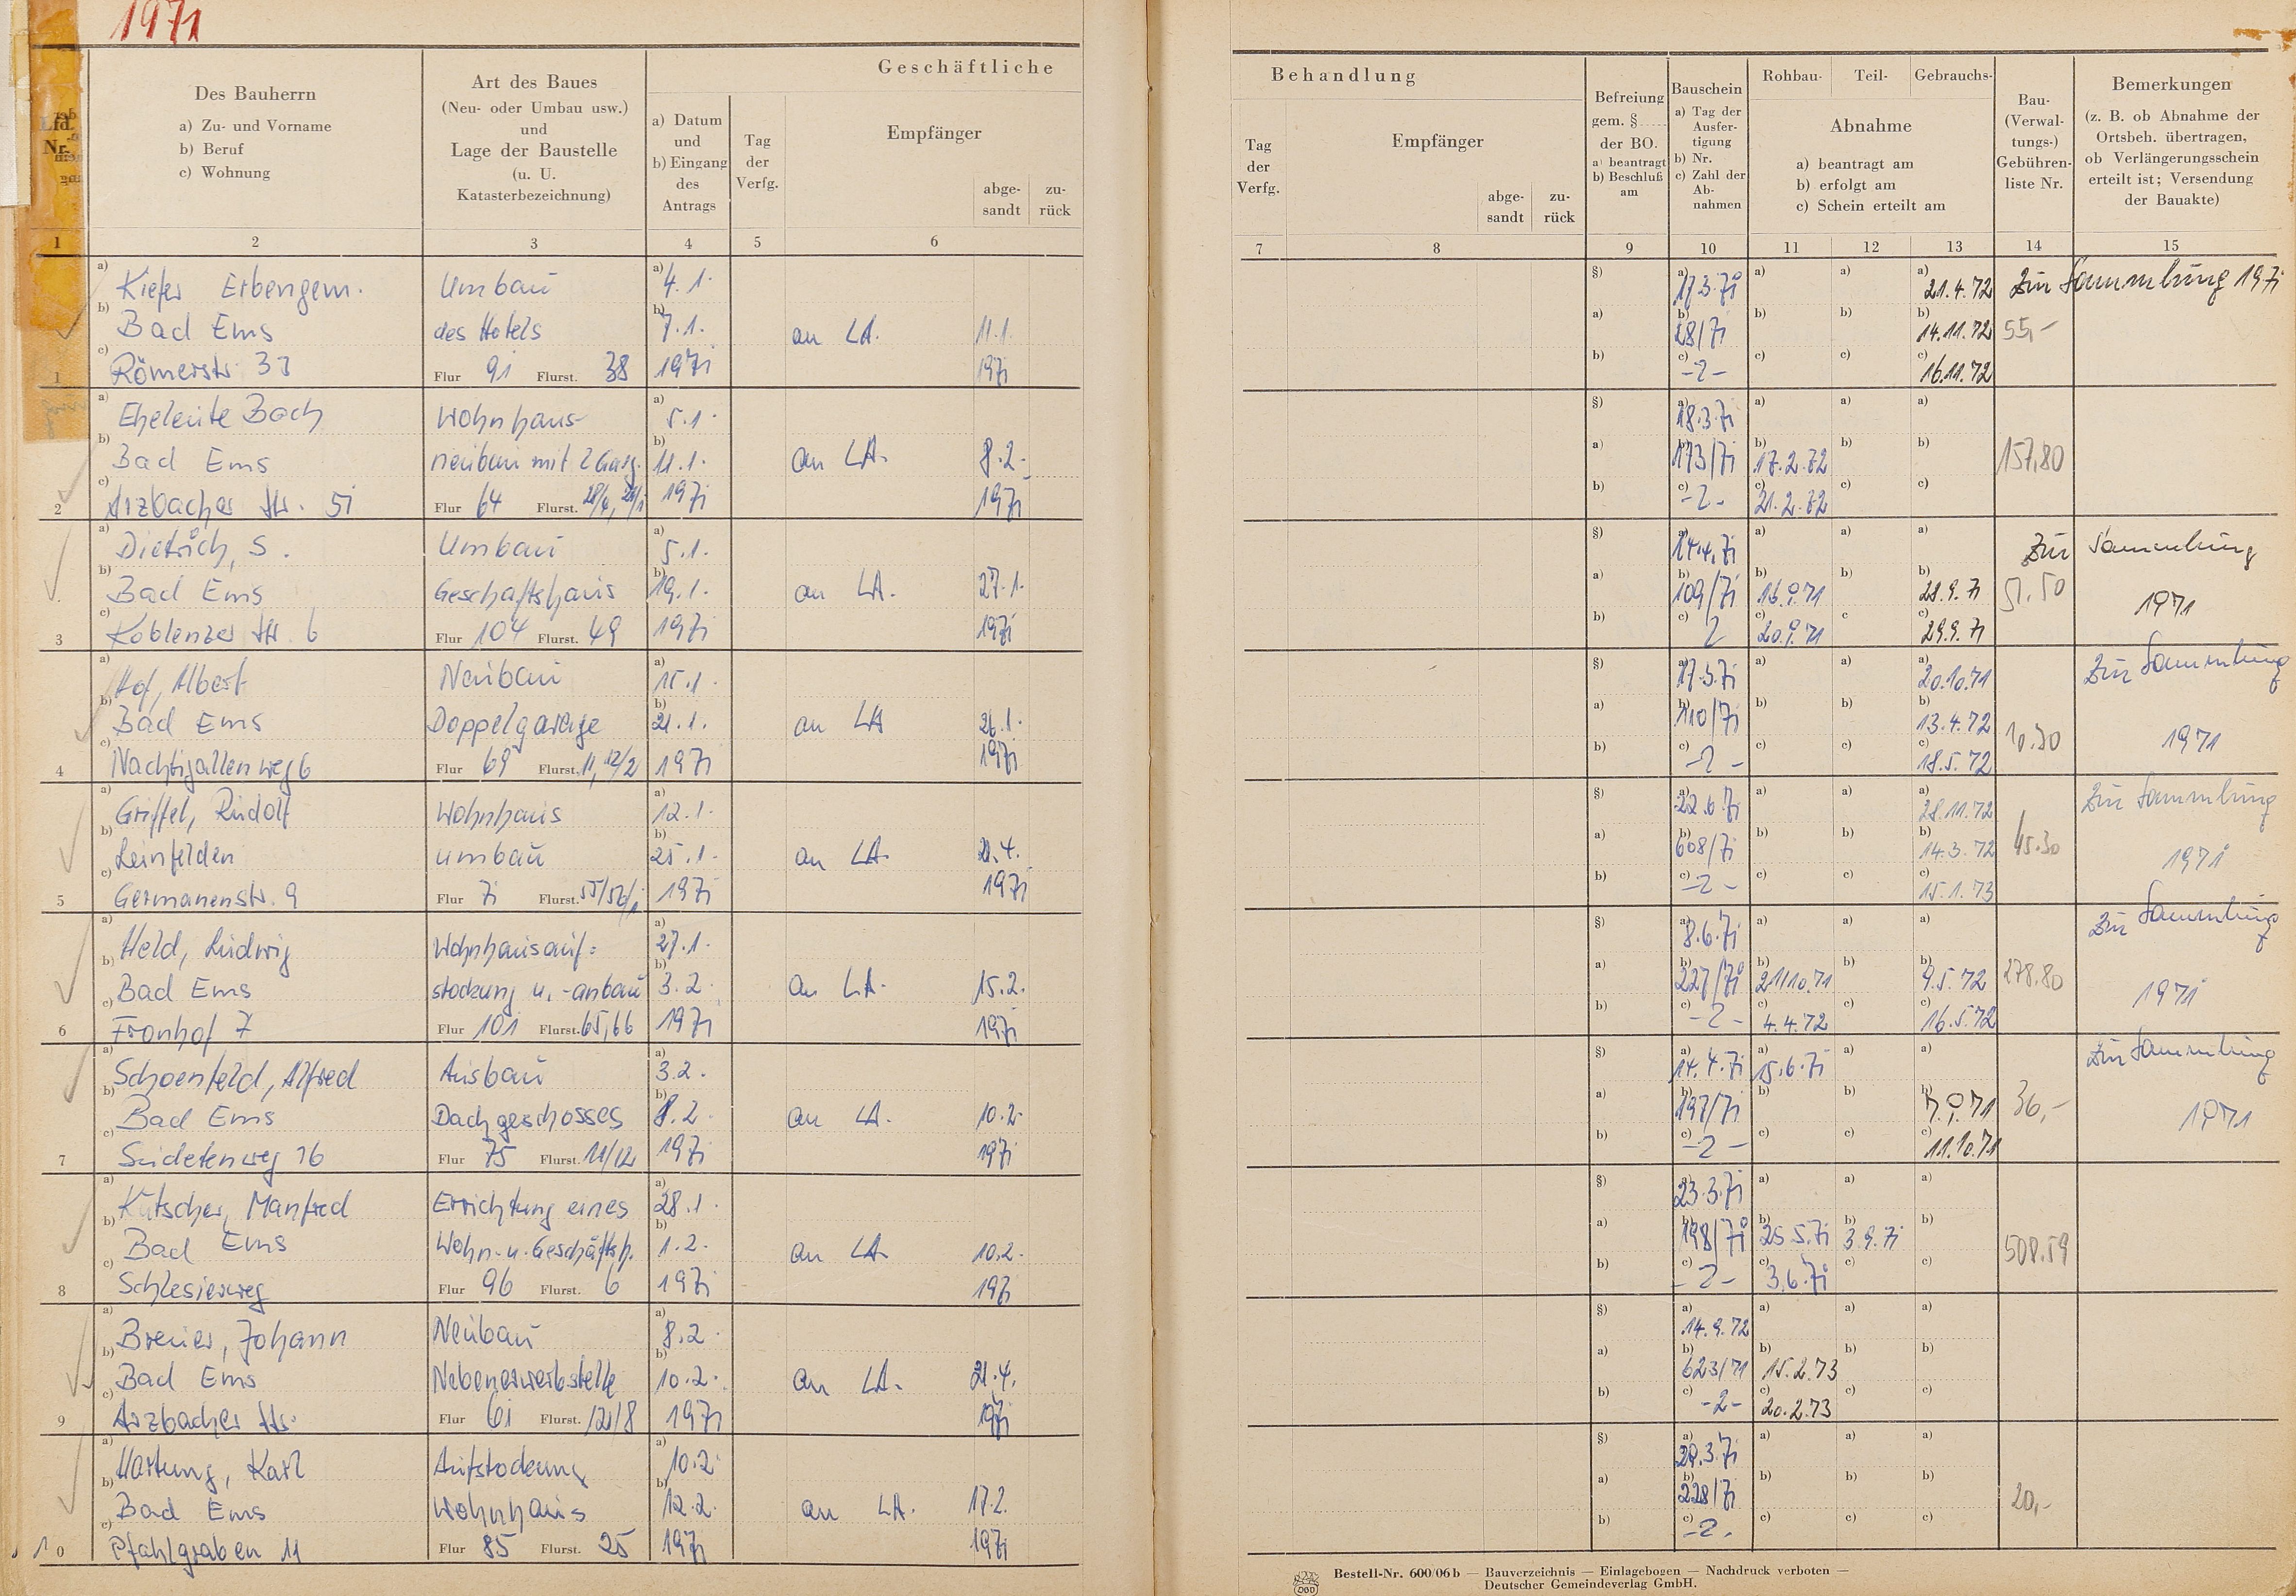 1971
Geschäftliche
Lfd. Nr.
Des Bauherrn
a) Zu- und Vorname
b) Beruf
c) Wohnung
Art des Baues
(Neu- oder Umbau usw.)
und
Lage der Baustelle
(u. U.
Katasterbezeichnung)
a) Datum
und
b) Eingang
des
Antrags
Tag
der
Verfg.
Empfänger
abge-
sandt
zu-
rück
1 2 3 4 5 6
a) Kiefer Erbengem. Umbau a) 4.1.
b) Bad Ems des Hotels b) 7.1. an LA. 11.1.
1 c) Römerstr. 33 Flur 91 Flurst. 38 1971 1971
a) Eheleute Bach Wohnhaus- a) 5.1.
b) Bad Ems neubau mit 2 Garg. b) 11.1. an LA. 8.2.
2 c) Arzbacher Str. 51 Flur 64 Flurst. 1971 1971
a) Dietrich, S. Umbau a) 5.1.
b) Bad Ems Geschäftshaus b) 19.1. an LA. 27.1.
3 c) Koblenzer Str. 6 Flur 104 Flurst. 49 1971 1971
a) Hof, Albert Neubau a) 15.1.
b) Bad Ems Doppelgarage b) 21.1. an LA 26.1.
4 c) Nachtigallenweg 6 Flur 69 Flurst. 11, 12/2 1971 1971
a) Griffel, Rudolf Wohnhaus a) 12.1.
b) Leinfelden umbau b) 25.1. an LA. 21.4.
5 c) Germanenstr. 9 Flur 71 Flurst. 55/56/1 1971 1971
a) Held, Ludwig Wohnhausauf= a) 27.1.
b) Bad Ems stockung u. -anbau b) 3.2. an LA. 15.2.
6 c) Fronhof 7 Flur 101 Flurst. 65,66 1971 1971
a) Schoenfeld, Alfred Ausbau a) 3.2.
b) Bad Ems Dachgeschosses b) 8.2. an LA. 10.2.
7 c) Sudetenweg 26 Flur 75 Flurst. 11/12 1971 1971
a) Kutscher, Manfred Errichtung eines a) 28.1.
b) Bad Ems Wohn- u. Geschäftsh. b) 1.2. an LA. 10.2.
8 c) Schlesierweg Flur 96 Flurst. 6 1971 1971
a) Breuer, Johann Neubau a) 8.2.
b) Bad Ems Nebenerwerbstelle b) 10.2. an LA. 21.4.
9 c) Arzbacher Str. Flur 61 Flurst. 121/8 1971 1971
a) Hartung, Karl Aufstockung a) 10.2.
b) Bad Ems Wohnhaus b) 12.2. an LA. 17.2.
10 c) Pfahlgraben 11 Flur 85 Flurst. 25 1971 1971
Behandlung
Tag
der
Verfg.
Empfänger
abge-
sandt
zu-
rück
Befreiung
gem. §
der BO.
a) beantragt
b) Beschluß
am
Bauschein
a) Tag der
Ausfer-
tigung
b) Nr.
c) Zahl der
Ab-
nahmen
Rohbau- Teil- Gebrauchs-
Abnahme
a) beantragt am
b) erfolgt am
c) Schein erteilt am
Bau-
(Verwal-
tungs-)
Gebühren-
liste Nr.
Bemerkungen
(z. B. ob Abnahme der
Ortsbeh. übertragen,
ob Verlängerungsschein
erteilt ist; Versendung
der Bauakte)
7 8 9 10 11 12 13 14 15
§) a) 17.3.71 a) a) a) 21.4.72 Zur Sammlung 1971
a) b) 28/71 b) b) b) 14.11.72 55,-
b) c) -2- c) c) c) 16.11.72
§) a) 18.3.71 a) a) a)
a) b) 173/71 b) 17.2.72 b) b) 157,80
b) c) -2- c) 21.2.72 c) c)
§) a) 14.4.71 a) a) a) Zur Sammlung
a) b) 109/71 b) 16.9.71 b) b) 28.9.71 51.50
b) c) 2 c) 20.9.71 c c) 29.9.71 1971
§) a) 17.5.71 a) a) a) 20.10.71 Zur Sammlung
a) b) 110/71 b) b) b) 13.4.72 10.30
b) c) -2- c) c) c) 18.5.72 1971
§) a) 22.6.71 a) a) a) 28.11.72 Zur Sammlung
a) b) 608/71 b) b) b) 14.3.72 45.30
b) c) -2- c) c) c) 15.1.73 1971
§) a) 8.6.71 a) a) a) Zur Sammlung
a) b) 227/71 b) 21/10.71 b) b) 9.5.72 278.80
b) c) -2- c) 4.4.72 c) c) 16.5.72 1971
§) a) 14.4.71 a) 15.6.71 a) a) Zur Sammlung
a) b) 197/71 b) b) b) 36,-
b) c) -2- c) c) c) 11.10.71 1971
§) a) 23.3.71 a) a) a)
a) b) 198/71 b) 25.5.71 b) 3.9.71 b) 508.59
b) c) -2- c) 3.6.71 c) c)
§) a) 14.9.72 a) a) a)
a) b) 623/71 b) 15.2.73 b) b)
b) c) -2- c) 20.2.73 c) c)
§) a) 29.3.71 a) a) a)
a) b) 228/71 b) b) b) 20,-
b) c) -2- c) c) c)
Bestell-Nr. 600/06 b — Bauverzeichnis — Einlagebogen — Nachdruck verboten —
Deutscher Gemeindeverlag GmbH.